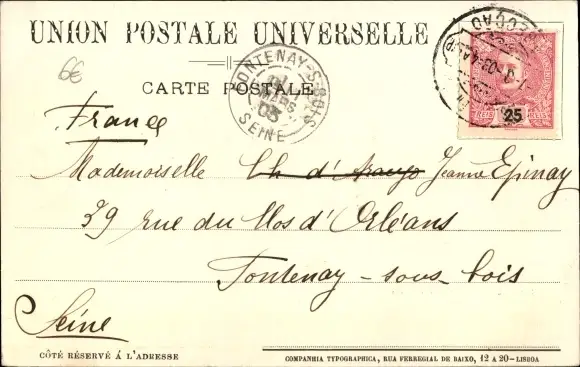 UNION POSTALE UNIVERSELLE
6€
CARTE POSTALE
FONTENAY-S-BOIS
MARS
03
SEINE
25
France
Mademoiselle Ch d'Araujo Jeanne Epinay
39 rue du Clos d'Orléans
Fontenay-sous-bois
Seine
CÔTÉ RÉSERVÉ Á L'ADRESSE
COMPANHIA TYPOGRAPHICA, RUA FERREGIAL DE BAIXO, 12 A 20-LISBOA